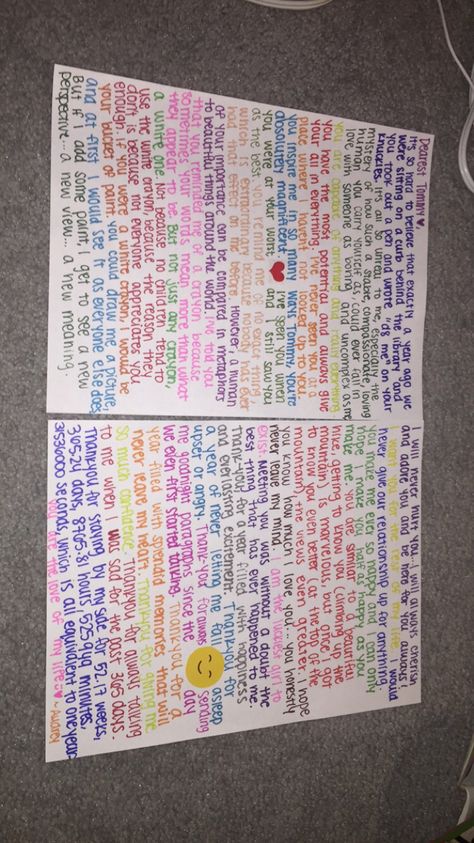 Dearest Tommy ♥
It's so hard to believe that exactly a year ago we
were sitting on a curb behind the library and
you took out a pen and wrote "d8 me" on your
knuckles. It's all so unreal to me especially the
mystery of how such a sizable, compassionate, loving
human you carry yourself as, could ever fall in
love with someone as boring and uncomplex as me
you are capable of anything and everything.
you have the most potential and always give
your all in everything. I've never seen you at a
place where I haven't not looked up to you.
you inspire me in so many ways Tommy, you're
absolutely magnificent ♥ I've seen you when
you were at your worst and still saw you
as the best. you remind me of no exact thing
which is extraordinary because nobody has ever
had that effect on me before. However, a human
of your importance can be compared in metaphors
to beautiful things around the world. I've told you
that you reminded me of a crayon because
sometimes your words mean more than what
they appear to be. But not just any crayon,
a white one. Not because no children tend to
use the white crayon, because the reason they
don't is because not everyone appreciates you
enough. If you were a white crayon, I would be
your bucket of paint. You could draw me a picture,
and at first I would see it as everyone else does
But if I add some paint, I get to see a new
perspective... a new view... a new meaning.
I will never hurt you. I will always cherish
& adore you and be there for you always
I want you for the rest of my life. I would
never give our relationship up for anything.
you make me ever so happy and I can only
hope I make you half as happy as you
make me. you are similar to a beautiful
hike, getting to know you (climbing the
mountain) is marvelous, but once I got
to know you even better (at the top of the
mountain), the views even greater. I hope
you know how much I love you... you honestly
never leave my mind. I am the luckiest girl to
exist. Meeting you was without a doubt the
best thing that has ever happened to me.
Thank-you for a year filled with happiness
and everlasting excitement. Thankyou for
a year of never letting me fall asleep
upset or angry. Thank-you for always sending
me goodnight paragraphs since the day
we even first started talking. Thankyou for a
year filled with splendid memories that will
never leave my heart. Thankyou for giving me
so much confidence. Thankyou for always talking
to me when I was sad for the past 365 days.
Thankyou for staying by my side for 52.17 weeks,
365.24 days, 8765.81 hours, 525,949 minutes,
seconds, which is all equivalent to one year
you are the love of my life. ~Audrey